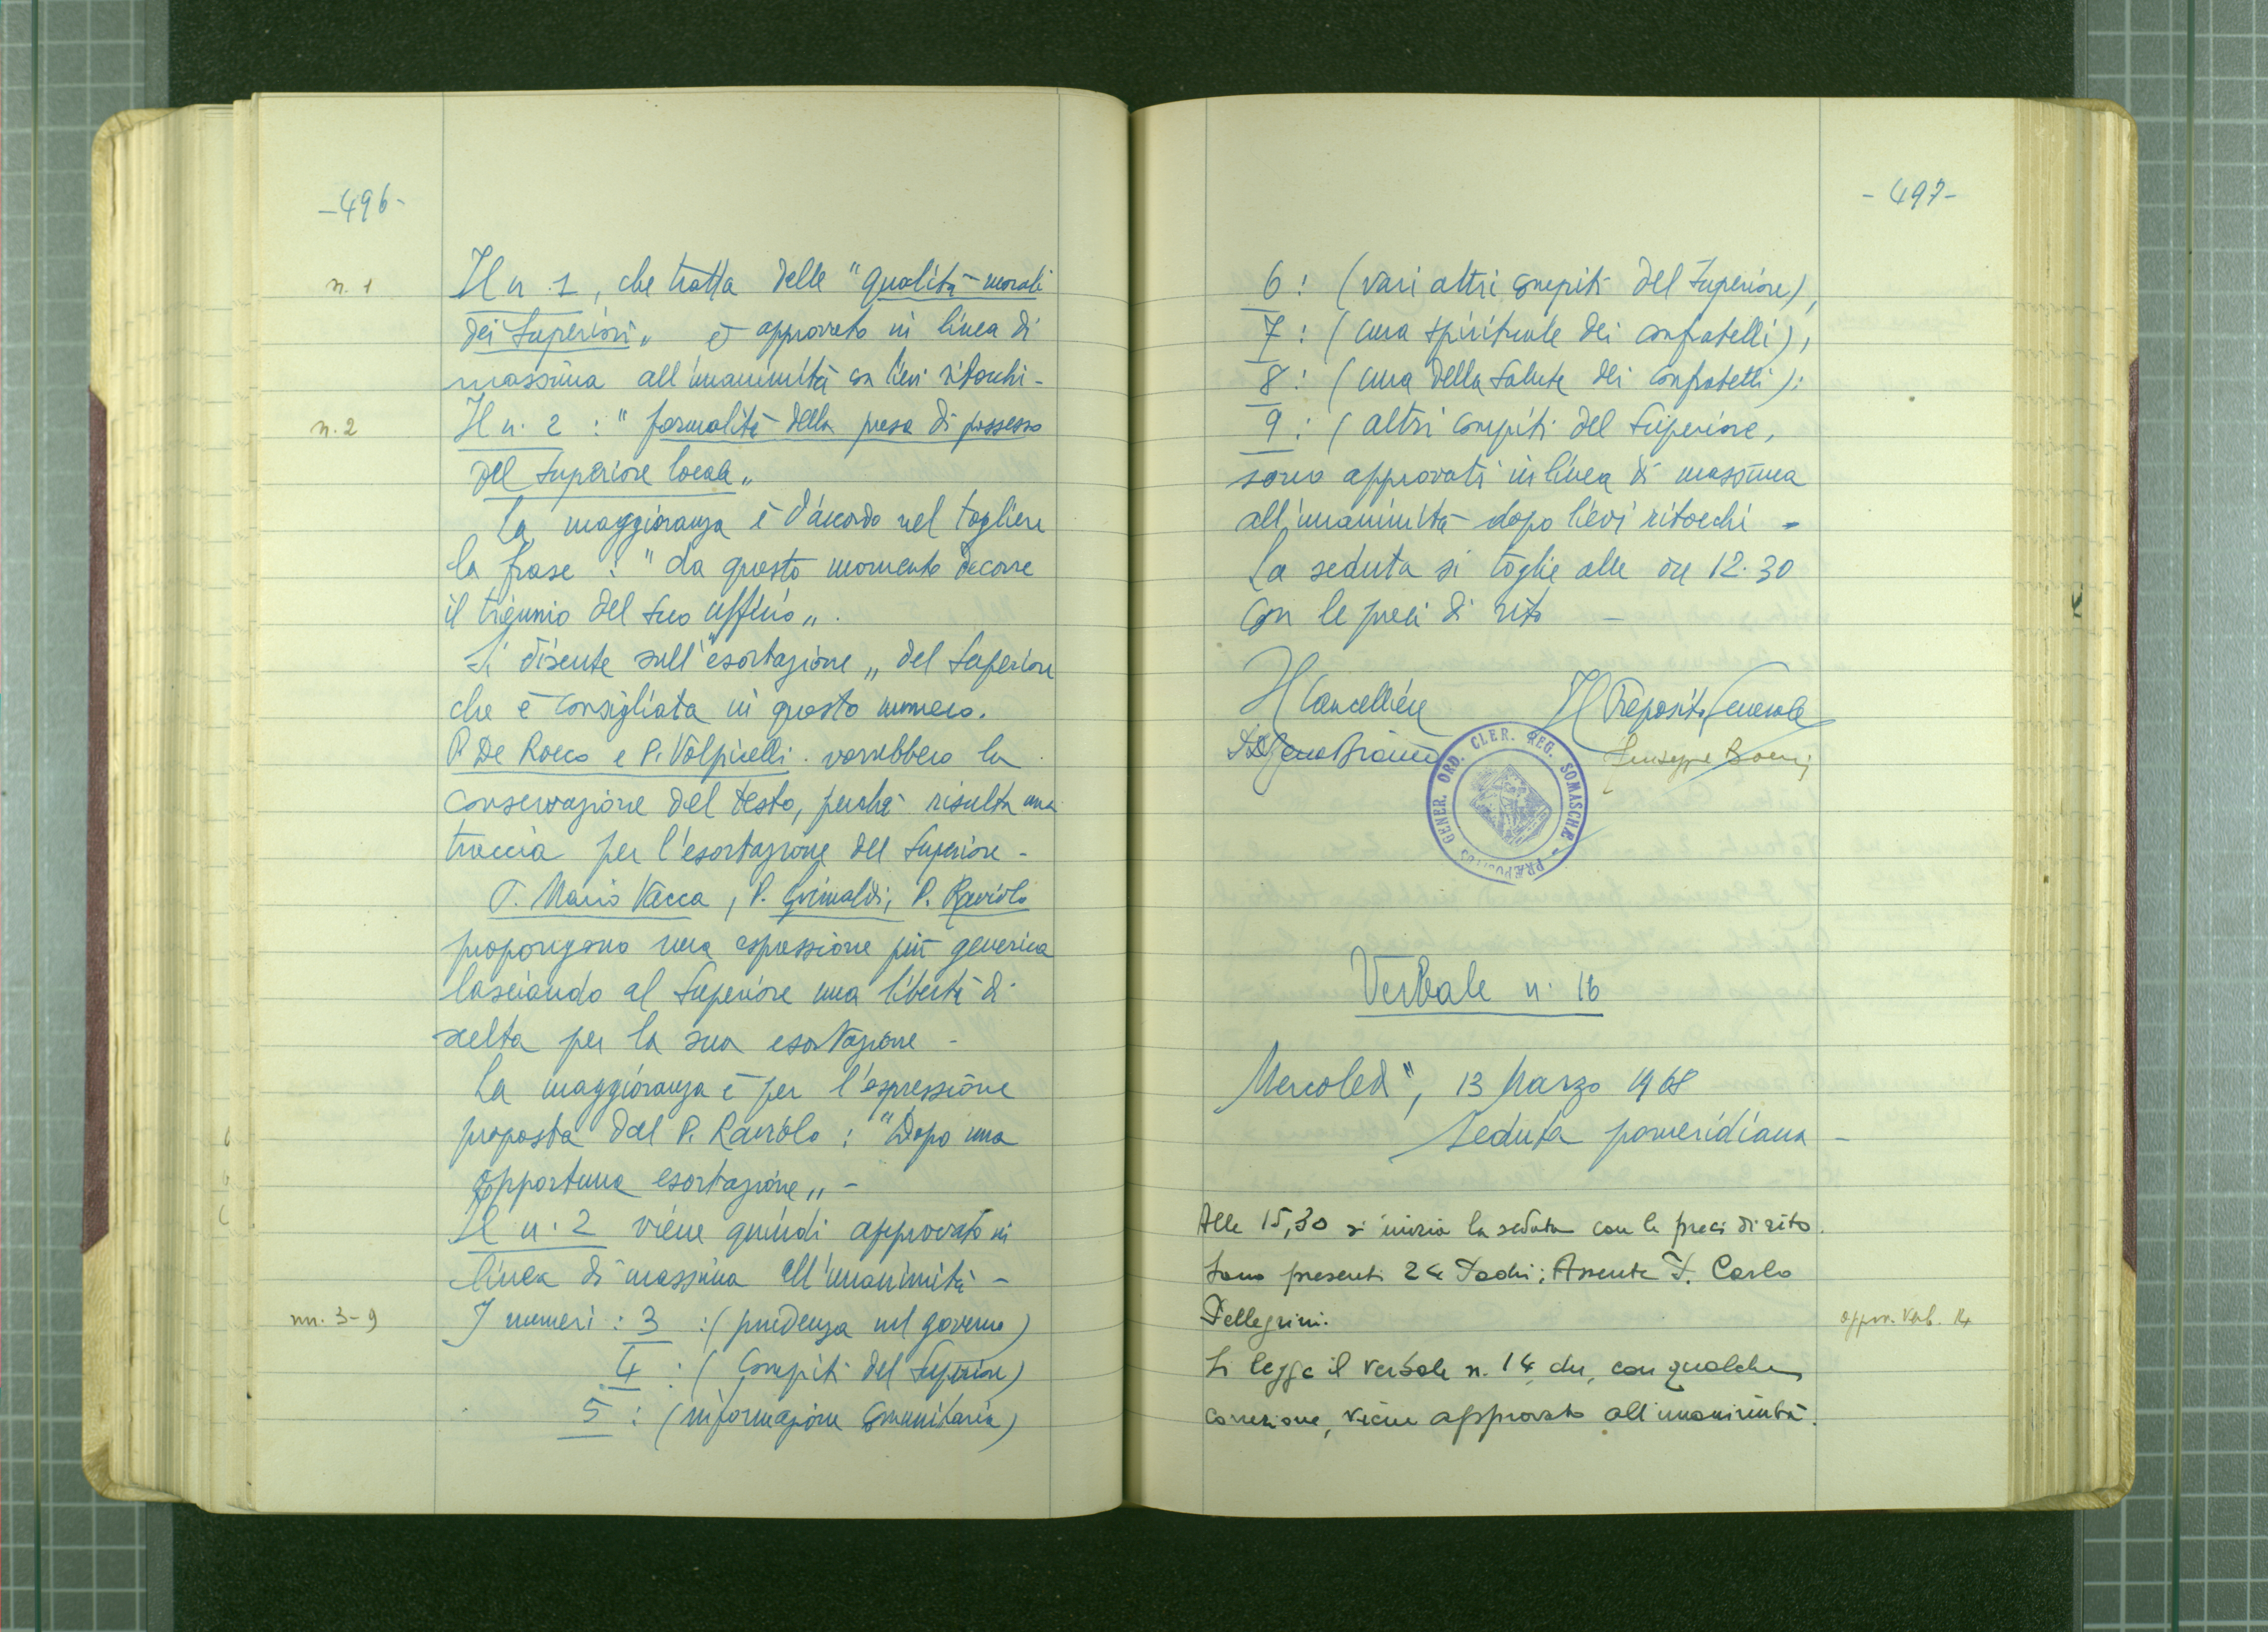 -496-
n. 1
Il n. 1, che tratta delle "qualità morali
dei Superiori" è approvato in linea di
massima all'unanimità con lievi ritocchi -
n. 2
Il n. 2 : "formalità della presa di possesso
del Superiore locale"
La maggioranza è d'accordo nel togliere
la frase : "da questo momento decorre
il triennio del suo ufficio".
Si discute sull'"esortazione" del Superiore
che è consigliata in questo numero.
P. De Rocco e P. Volpicelli vorrebbero la
conservazione del testo, perchè risulta una
traccia per l'esortazione del Superiore -
P. Mario Vacca, P. Grimaldi, P. Raviolo
propongono una espressione più generica
lasciando al Superiore una libertà di
scelta per la sua esortazione -
La maggioranza è per l'espressione
proposta dal P. Raviolo : "Dopo una
opportuna esortazione" -
Il n. 2 viene quindi approvato in
linea di massima all'unanimità -
nn. 3-9
I numeri : 3 : (prudenza nel governo)
4 : (Compiti del Superiore)
5 : (informazione comunitaria)
-497-
6 : (vari altri compiti del Superiore),
7 : (cura spirituale dei confratelli),
8 : (cura della salute dei confratelli):
9 : (altri compiti del Superiore,
sono approvati in linea di massima
all'unanimità dopo lievi ritocchi -
La seduta si toglie alle ore 12.30
con le preci di rito -
Il Cancelliere
Il Preposito Generale
Giuseppe Boeris
PRÆPOSITUS GENER. ORD. CLER. REG. SOMASCHÆ
Verbale n. 16
Mercoledì, 13 Marzo 1968
Seduta pomeridiana -
Alle 15,30 si inizia la seduta con le preci di rito.
Sono presenti 24 Padri; Assente P. Carlo
Pellegrini.
appr. verb. 14
Si legge il verbale n. 14 che, con qualche
correzione, viene approvato all'unanimità.